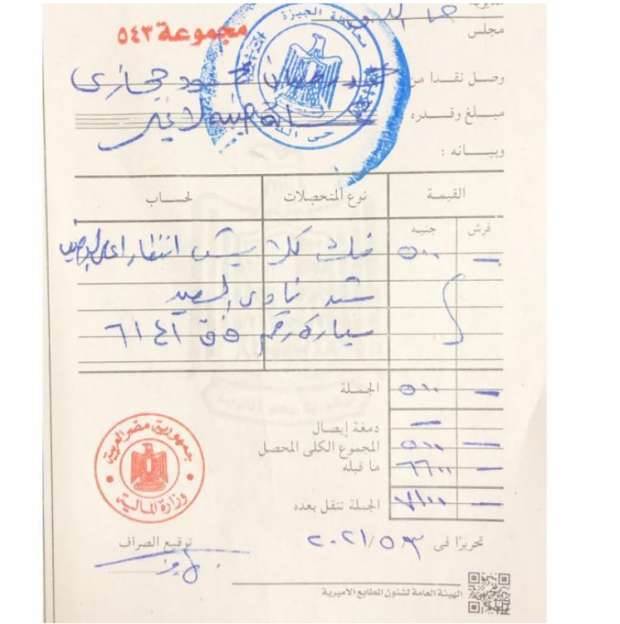 محافظة الجيزة
مجموعة ٥٤٣
مجلس
وصل نقدا من محمود حجازى
مبلغ وقدره جنيه لاغير
وبيانه :
القيمة نوع المتحصلات لحساب
قرش جنيه
٥٠٠ فك كلابش انتظار أعلى
نادى الصيد
سيارة رقم
الجملة ٥٠٠
دمغة إيصال —
المجموع الكلى المحصل ٥٠٠
ما قبله ٦٦٠٠
الجملة تنقل بعده ٧١٠٠
جمهورية مصر العربية
وزارة المالية
تحريرًا فى ٢٠٢١/٥/٣
توقيع الصراف
الهيئة العامة لشئون المطابع الأميرية